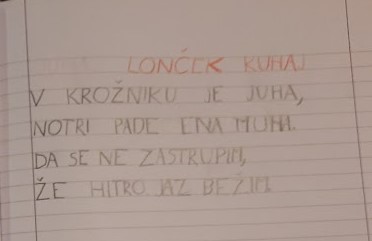 LONČEK KUHAJ
V KROŽNIKU JE JUHA,
NOTRI PADE ENA MUHA.
DA SE NE ZASTRUPIM,
ŽE HITRO JAZ BEŽIM.